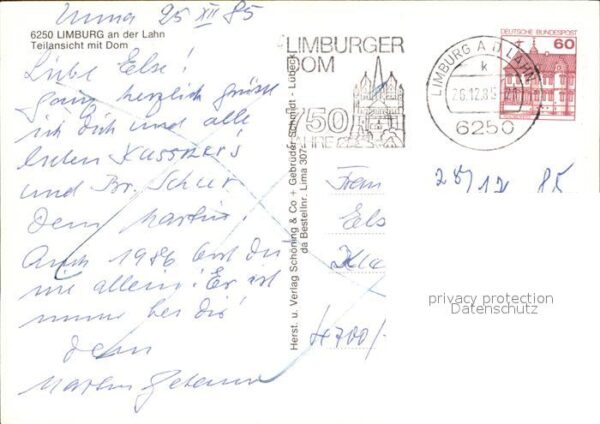 25 XII 85
6250 LIMBURG an der Lahn
Teilansicht mit Dom
Liebe Else!
ganz herzlich grüsst
ich Dich und alle
lieben
und Br.
Dein Martin!
Auch 1986 bist Du
nie allein! Er ist
immer bei Dir!
Dein
Martin
Herst. u. Verlag Schöning & Co + Gebrüder Schmidt - Lübeck
Bestellnr. Lima 307
LIMBURGER
DOM
750
JAHRE
LIMBURG A D LAHN
k
26.12.85
6250
DEUTSCHE BUNDESPOST
60
28/12 85
Frau
Els
privacy protection
Datenschutz